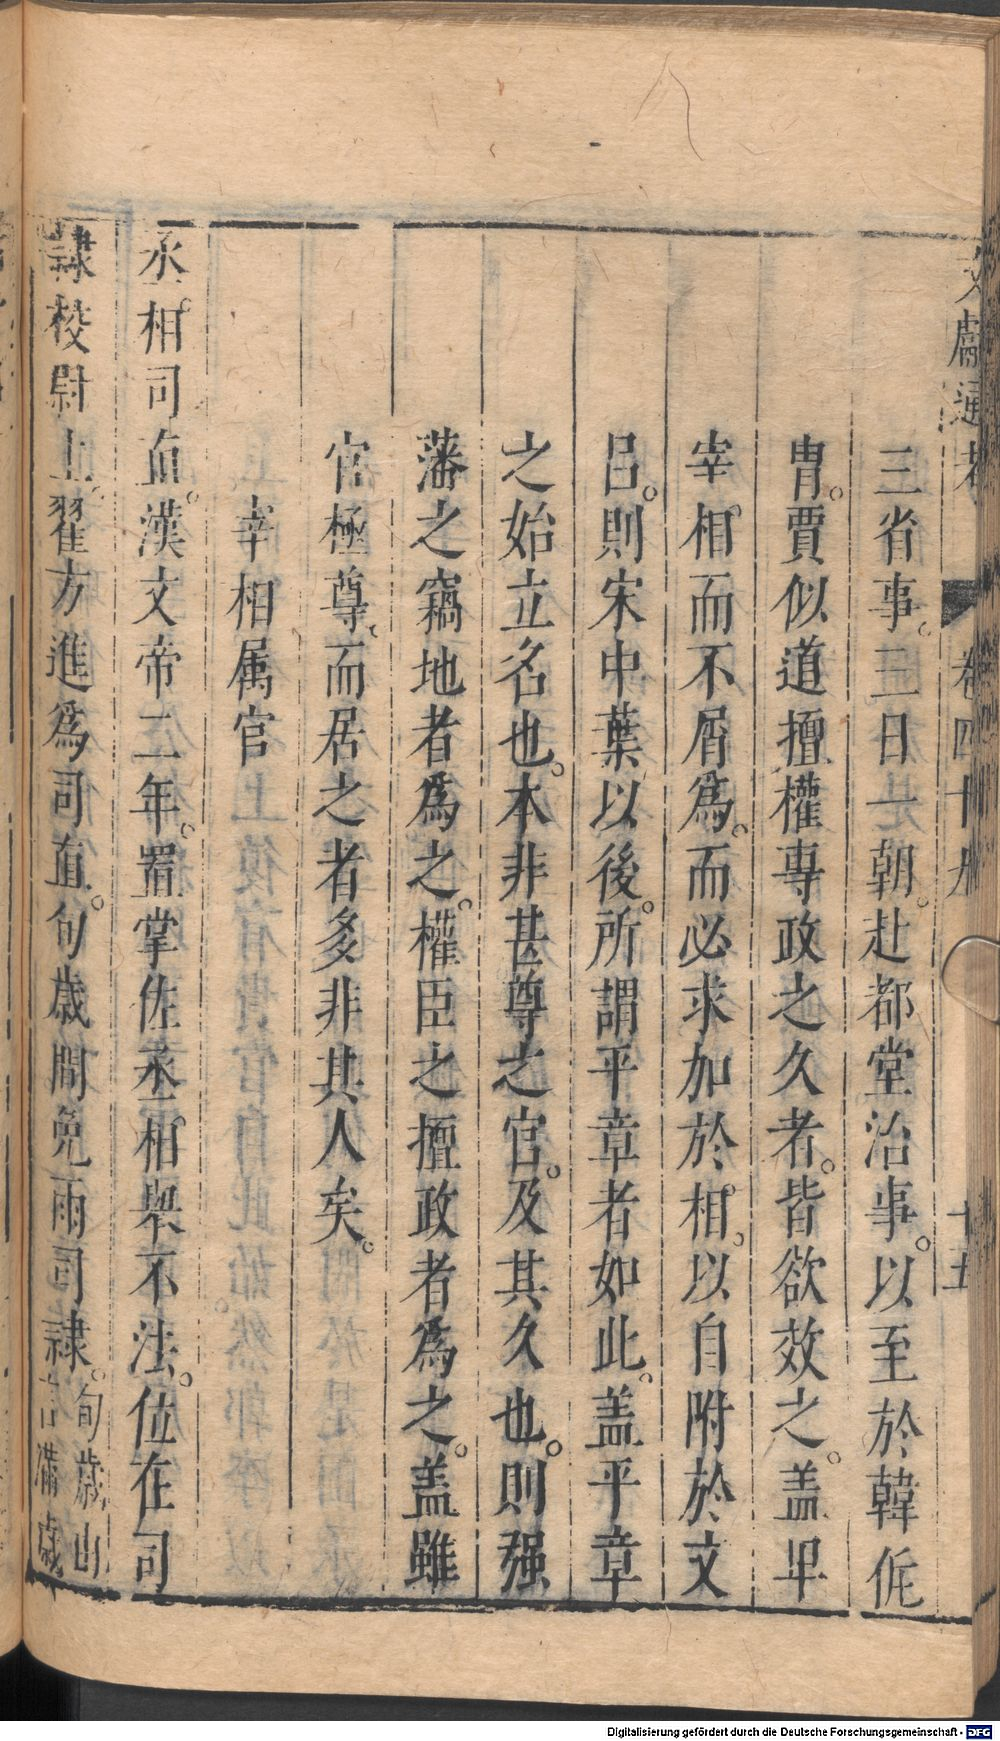 文獻通考 卷四十九 十五
三省事。三日一朝。赴都堂治事。以至於韓侂
胄。賈似道擅權專政之久者。皆欲效之。盖卑
宰相而不屑爲。而必求加於相。以自附於文
呂。則宋中葉以後。所謂平章者如此。盖平章
之始立名也。本非甚尊之官。及其久也。則强
藩之竊地者爲之。權臣之擅政者爲之。盖雖
官極尊。而居之者多非其人矣。
宰相属官
丞相司直。漢文帝二年。置掌佐丞相舉不法。位在司
隷校尉上。翟方進爲司直。旬歲間免兩司隷。旬歲
滿歲
Digitalisierung gefördert durch die Deutsche Forschungsgemeinschaft - DFG